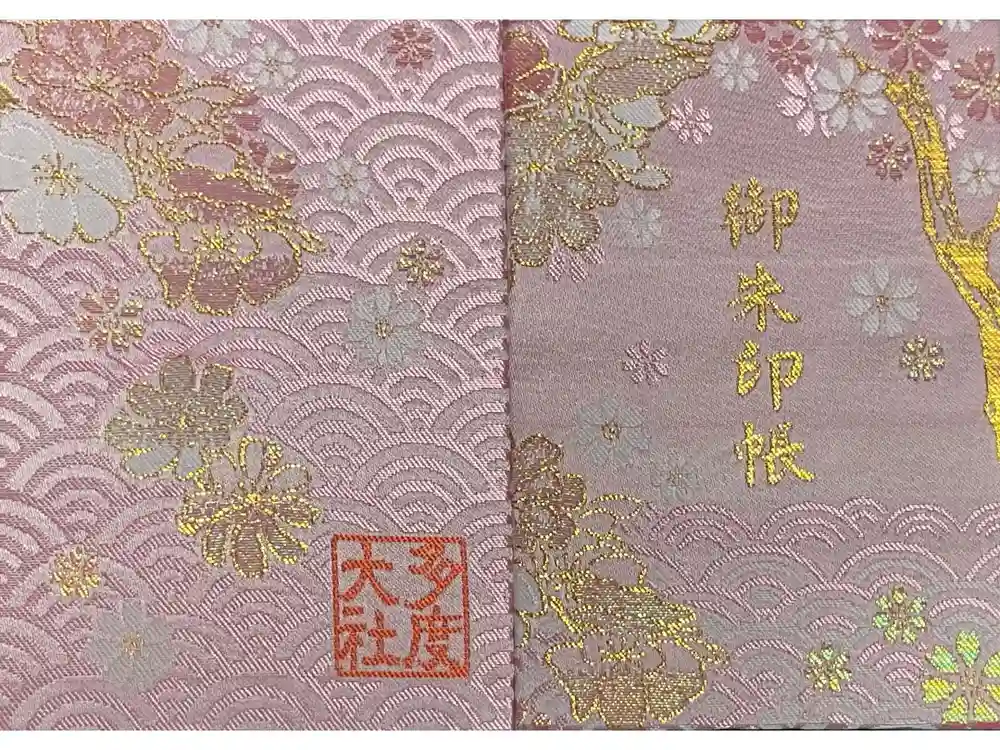 御朱印帳
多度
大社